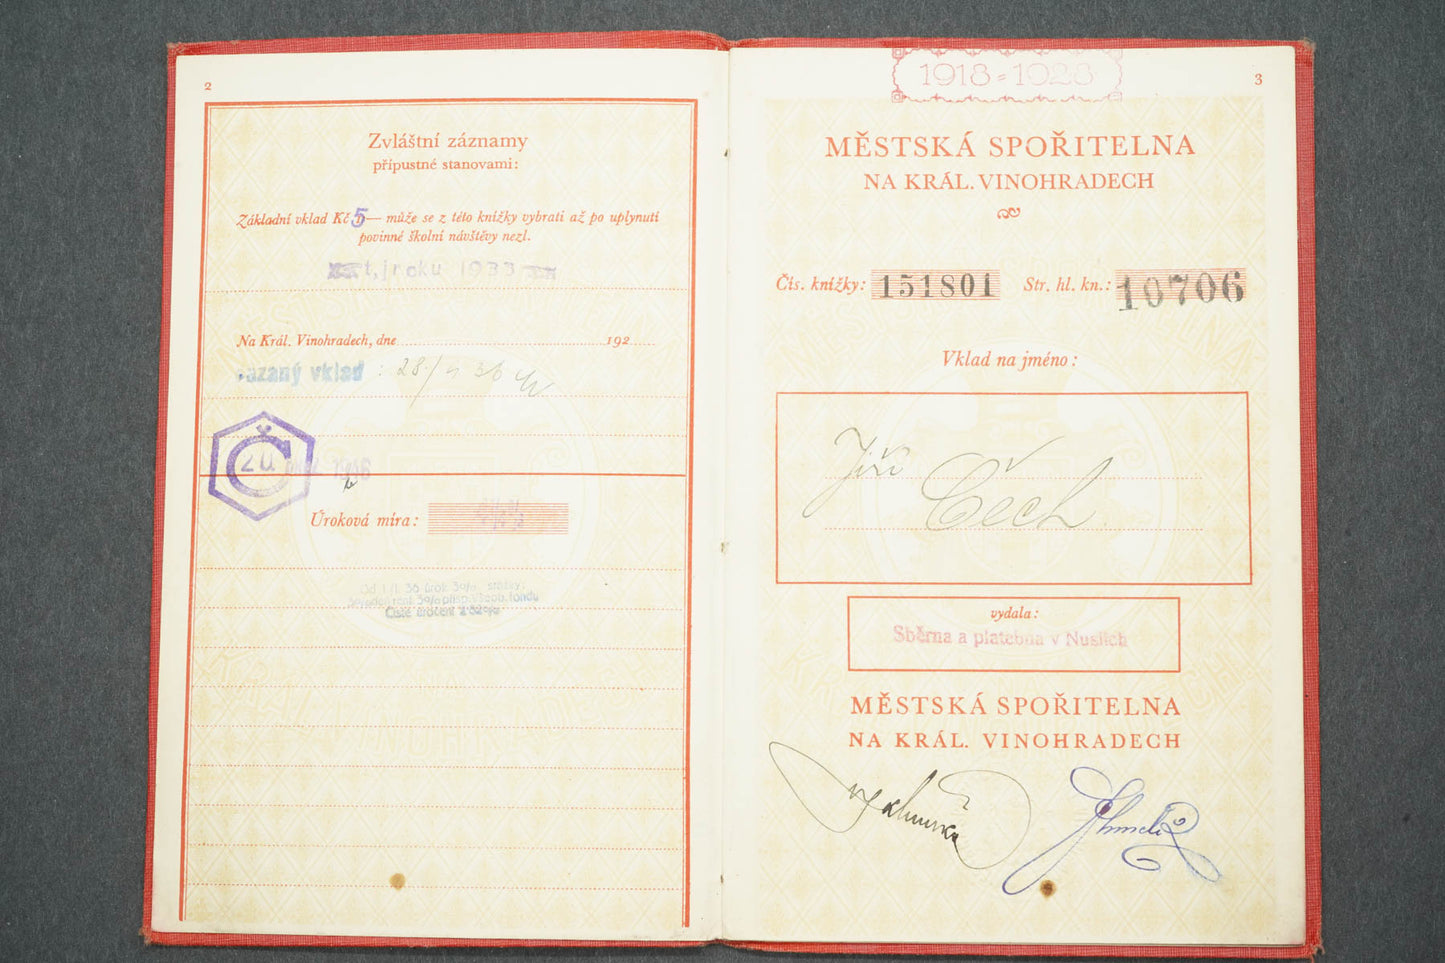 2
Zvláštní záznamy
přípustné stanovami:
Základní vklad Kč 5— může se z této knížky vybrati až po uplynutí
povinné školní návštěvy nezl.
t.j. roku 1933
Na Král. Vinohradech, dne 192
vázaný vklad : 28/
20 1946
Č
Úroková míra:
Od 1/I. 36 úrok 3%
Čisté úročení
1918-1928
3
MĚSTSKÁ SPOŘITELNA
NA KRÁL. VINOHRADECH
Čís. knížky: 151801 Str. hl. kn.: 10706
Vklad na jméno:
Jiří Čech
vydala:
Sběrna a platebna v Nuslích
MĚSTSKÁ SPOŘITELNA
NA KRÁL. VINOHRADECH